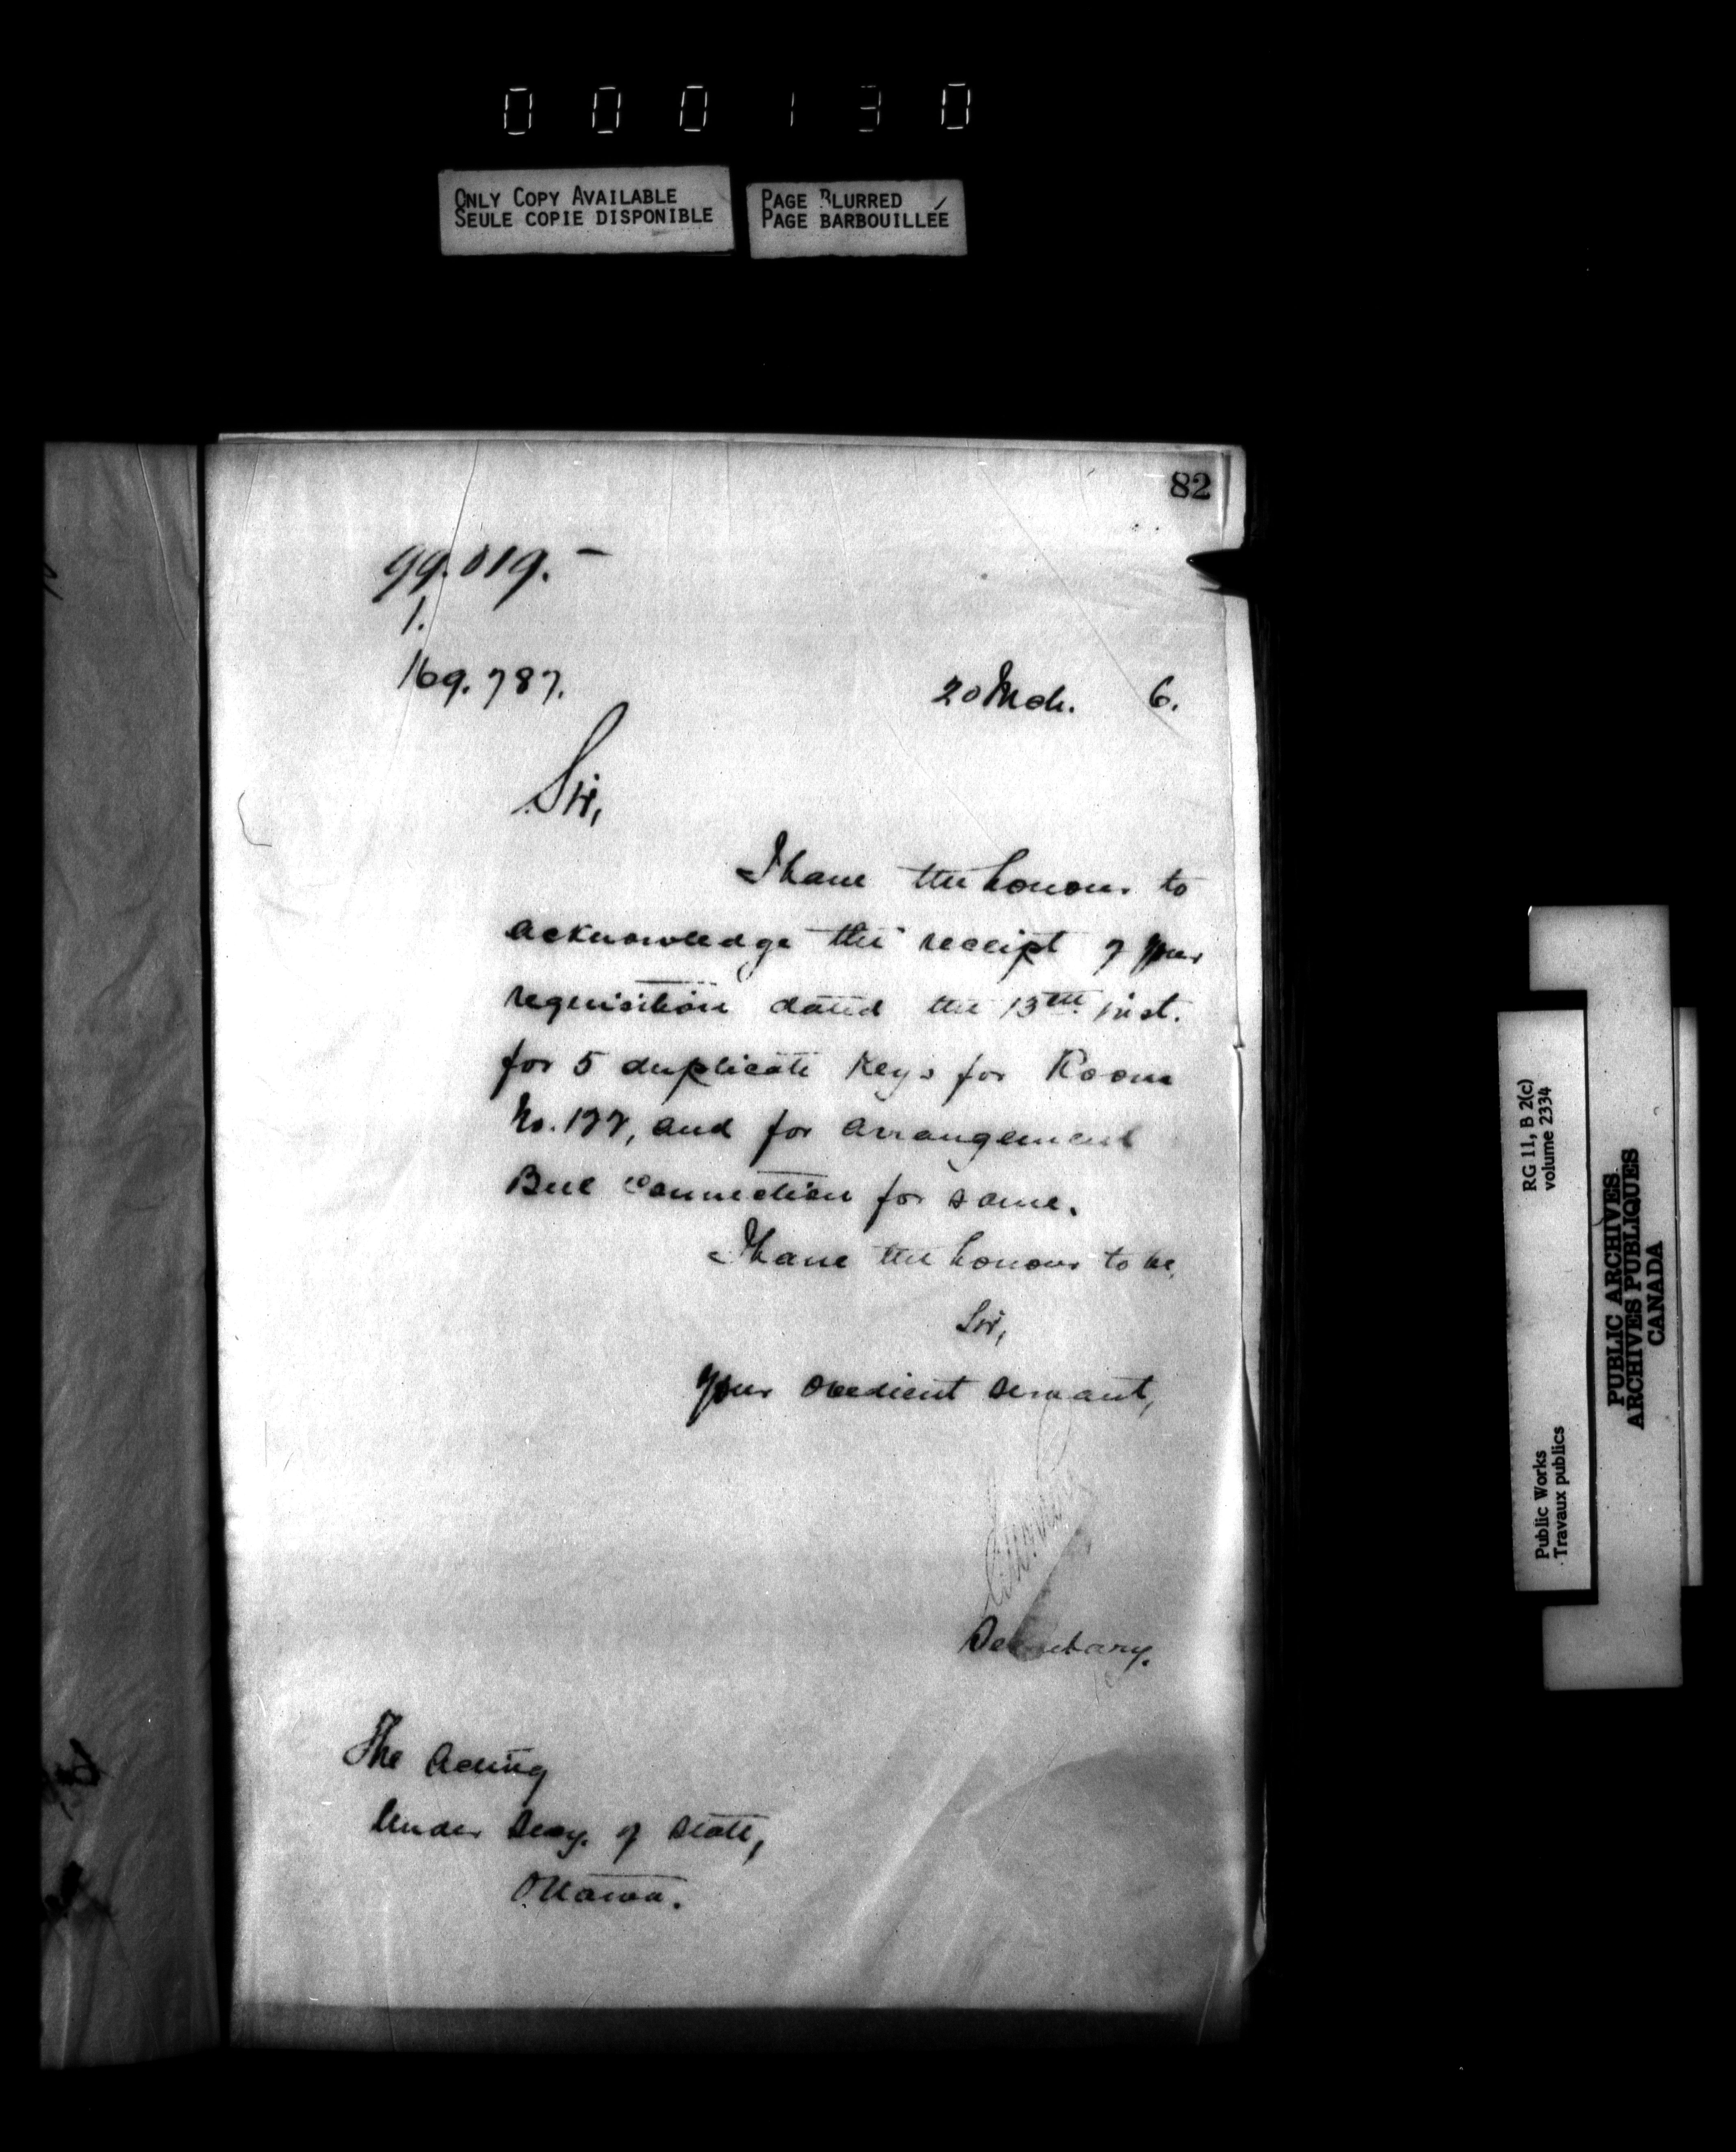 0 0 0 1 3 0
ONLY COPY AVAILABLE
SEULE COPIE DISPONIBLE
PAGE BLURRED
PAGE BARBOUILLÉE
82
99.019.-
1.
169.787.
20 Mch. 6.
Sir,
I have the honour to
acknowledge the receipt of your
requisition dated the 13th. inst.
for 5 duplicate keys for Room
No. 177, and for arrangement
Bell connection for same.
I have the honour to be,
Sir,
Your obedient servant,
Secretary.
The Acting
Under Secy. of State,
Ottawa.
RG 11, B 2(c)
volume 2334
Public Works
Travaux publics
PUBLIC ARCHIVES
ARCHIVES PUBLIQUES
CANADA